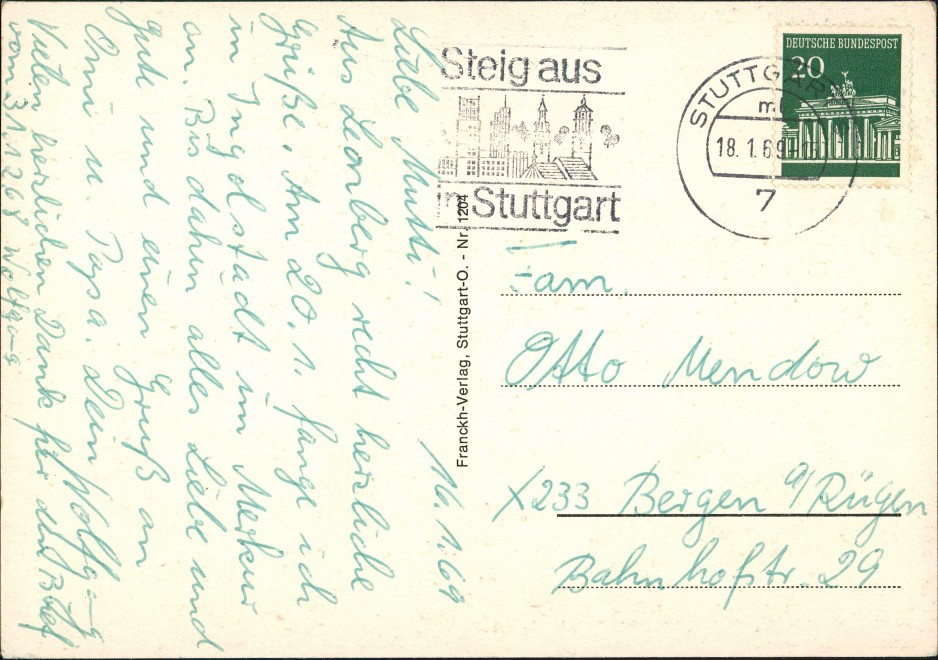 16.1.69
Liebe Mutti!
Aus Leonberg recht herzliche
Grüße. Am 20.1. fange ich
in Ingolstadt im Merkur
an. Bis dahin alles Liebe und
Gute und einen Gruß an
Omi u. Papa. Dein Wolfgang
Vielen herzlichen Dank für den Brief
vom 31.12.68 Wolfgang
Franckh-Verlag, Stuttgart-O. - Nr. 1204
Steig aus
in Stuttgart
STUTTGART
18.1.69
7
DEUTSCHE BUNDESPOST
20
Fam.
Otto Mendow
X233 Bergen a/Rügen
Bahnhofstr. 29